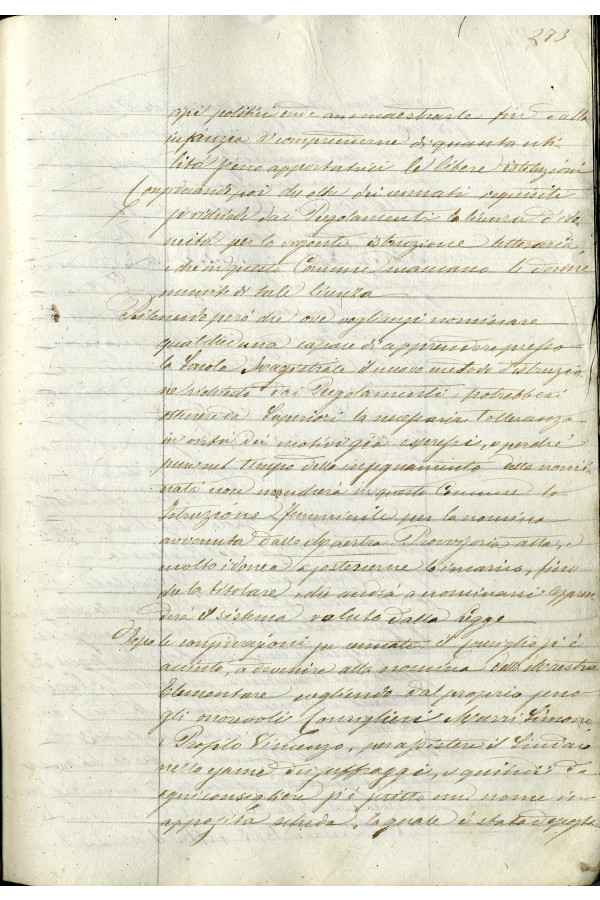 273
politici onde ammaestrarle fin dalla
infanzia a comprenderne di quanta uti
lità sieno apportatrici le libere istituzioni
Considerando poi che oltre dei cennati requisiti
prediletti dai Regolamenti la licenza d'ido
neità per la vigente istruzione letteraria
e che in questo Comune mancano le donne
munite di tale licenza
Ritenendo però che ove vogliasi nominare
qualcheduna capace di apprendere presso
la Scuola Magistrale il nuovo metodo d'istruzio
ne richiesto dai Regolamenti, potrebbesi
ottenere da' Superiori la necessaria tolleranza
in vista dei motivi già espressi, e perchè
pure nel tempo dello insegnamento della nomi
nata non mancherà in questo Comune la
Istruzione Femminile per la nomina
avvenuta della Maestra Provvisoria alta, e
molto idonea a sostenerne la carica, fino
che la titolare, che andrà a nominarsi appren
derà il sistema voluto dalla legge
Dopo le considerazioni su cennate il Consiglio si è
accinto a devenire alla nomina della Maestra
Elementare scegliendo dal proprio seno
gli onorevoli Consiglieri Murri Simone
e Profilo Vincenzo, per assistere il Sindaco
nello esame dei suffragi, e quindi da
ogni consigliere si è scritto un nome in
apposita scheda, la quale è stata deposta